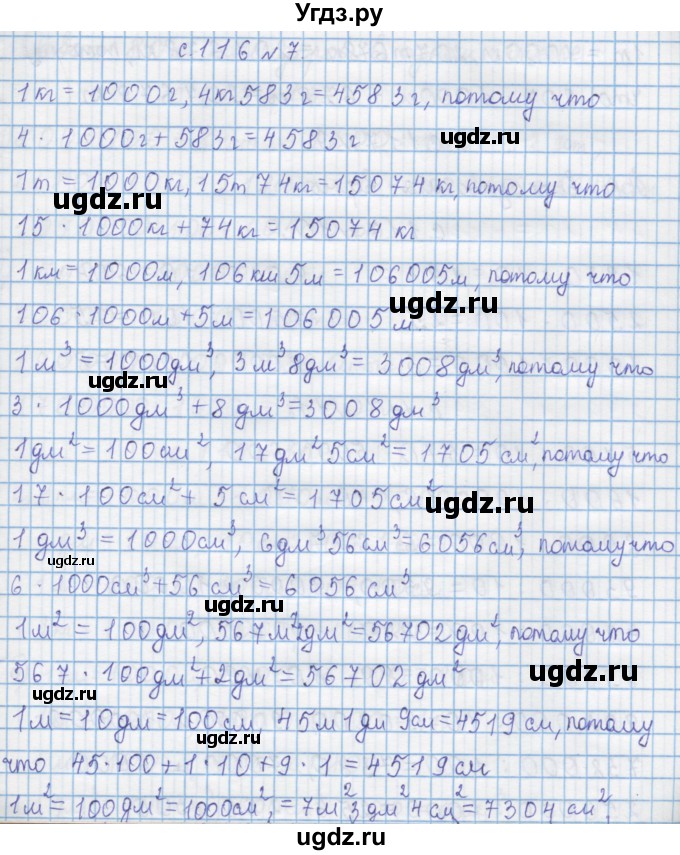 Угdз.ру
с.116 №7.
1кг = 1000г, 4кг583г = 4583г, потому что
4 · 1000г + 583г = 4583г
ugdz.ru
1т = 1000кг, 15т 74кг = 15074 кг, потому что
ugdz.ru
15 · 1000кг + 74кг = 15074 кг
1км = 1000м, 106км 5м = 106005м, потому что
ugdz.ru
106 · 1000м + 5м = 106005м.
1м³ = 1000дм³, 3м³8дм³ = 3008дм³, потому что
ugdz.ru
3 · 1000дм³ + 8дм³ = 3008дм³
1дм² = 100см², 17дм²5см² = 1705см², потому что
17 · 100см² + 5см² = 1705см²
ugdz.ru
1дм³ = 1000см³, 6дм³56см³ = 6056см³, потому что
ugdz.ru
6 · 1000см³ + 56см³ = 6056см³
ugdz.ru
1м² = 100дм², 567м²2дм² = 56702дм², потому что
567 · 100дм² + 2дм² = 56702дм²
ugdz.ru
ugdz.ru
1м = 10дм = 100см 45м1дм 9см = 4519см, потому
ugdz.ru
что 45·100 + 1·10 + 9·1 = 4519см
1м² = 100дм² = 1000см², = 7м²3дм²4см² = 7304см²,
ugdz.ru
ugdz.ru